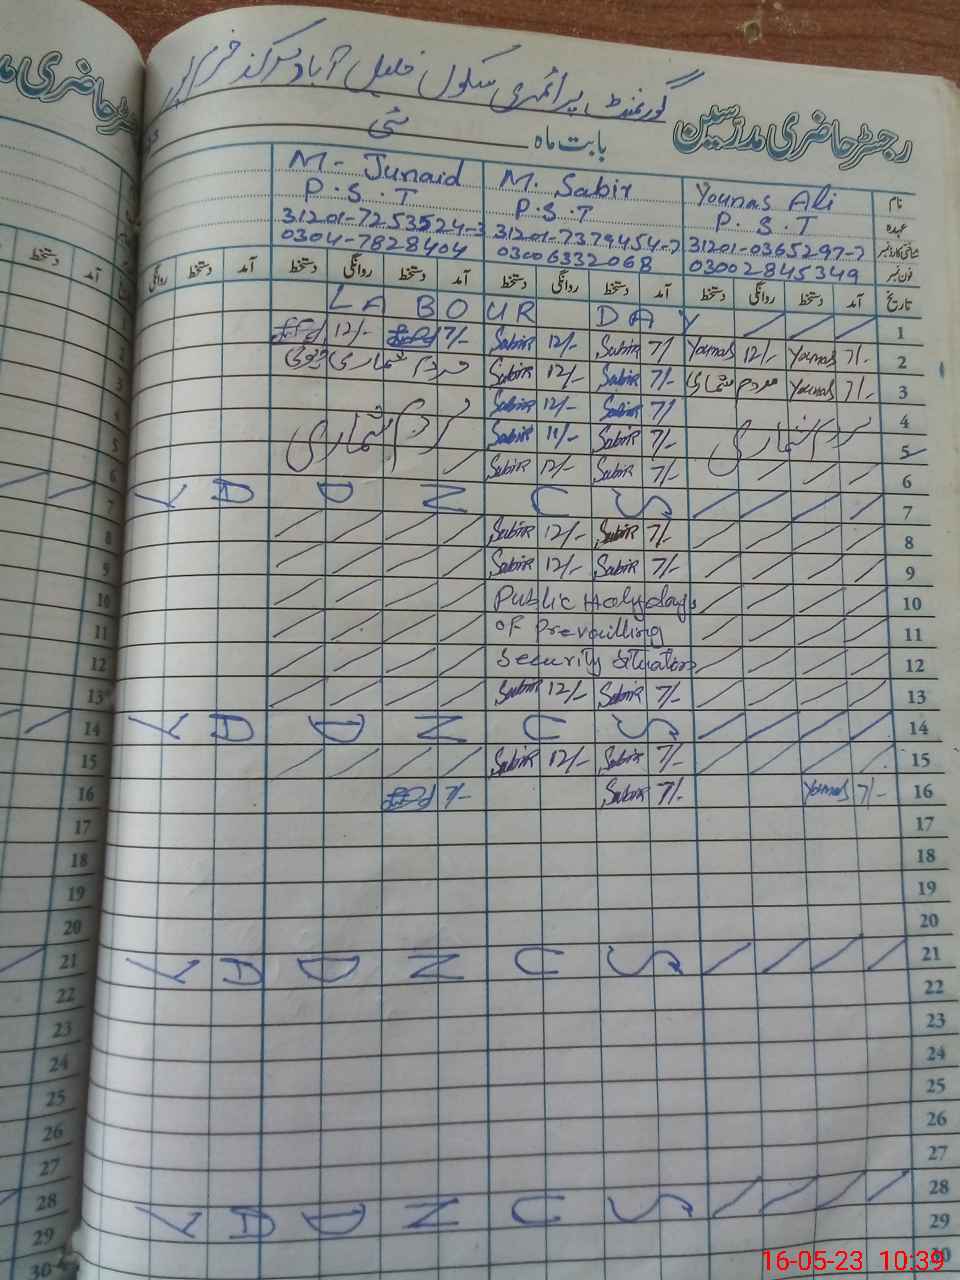 گورنمنٹ پرائمری سکول خلیل آباد مرکز
رجسٹر حاضری مدرسین
بابت ماہ مئی
نام Younas Ali M. Sabir M- Junaid
عہدہ P.S.T P.S.T P.S.T
شناختی کارڈ نمبر 31201-0365297-7 31201-7379454-7 31201-7253524-3
فون نمبر 03002845349 03006332068 0304-7828404
تاریخ آمد دستخط روانگی دستخط آمد دستخط روانگی دستخط آمد دستخط روانگی دستخط آمد دستخط روانگی
1 LABOUR DAY
2 7/- Younas 12/- Younas 7/ Sabir 12/- Sabir 7/- 12/-
3 7/- Younas مردم شماری 7/- Sabir 12/- Sabir مردم شماری ڈیوٹی
4 7/ Sabir 12/- Sabir
5 مردم شماری 7/- Sabir 11/- Sabir مردم شماری
6 7/- Sabir 12/- Sabir
7 SUNDAY
8 7/- Sabir 12/- Sabir
9 7/- Sabir 12/- Sabir
10 Public Holydays
11 OF Prevailling
12 Security Situation
13 7/- Sabir 12/- Sabir
14 SUNDAY
15 7/- Sabir 12/- Sabir
16 7/- Younas 7/- Sabir 7/-
17
18
19
20
21 SUNDAY
22
23
24
25
26
27
28 SUNDAY
29
30
16-05-23 10:39